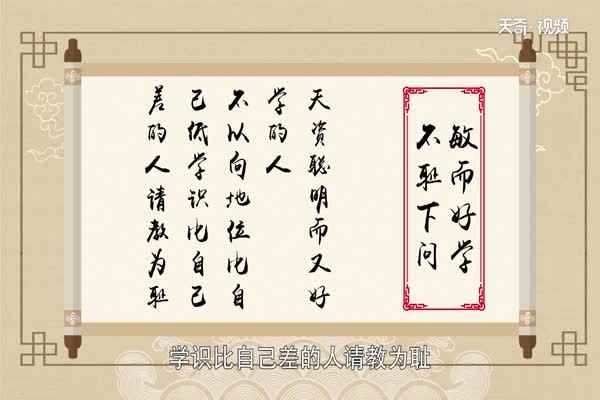 天奇·视频
敏而好学
不耻下问
天资聪明而又好
学的人
不以向地位比自
己低学识比自己
差的人请教为耻
学识比自己差的人请教为耻